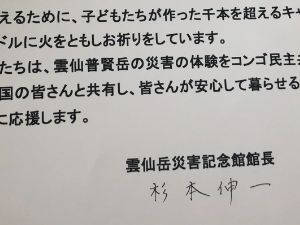 えるために、子どもたちが作った千本を超えるキャ
ドルに火をともしお祈りをしています。
たちは、雲仙普賢岳の災害の体験をコンゴ民主共
国の皆さんと共有し、皆さんが安心して暮らせる
に応援します。
雲仙岳災害記念館館長
杉本伸一